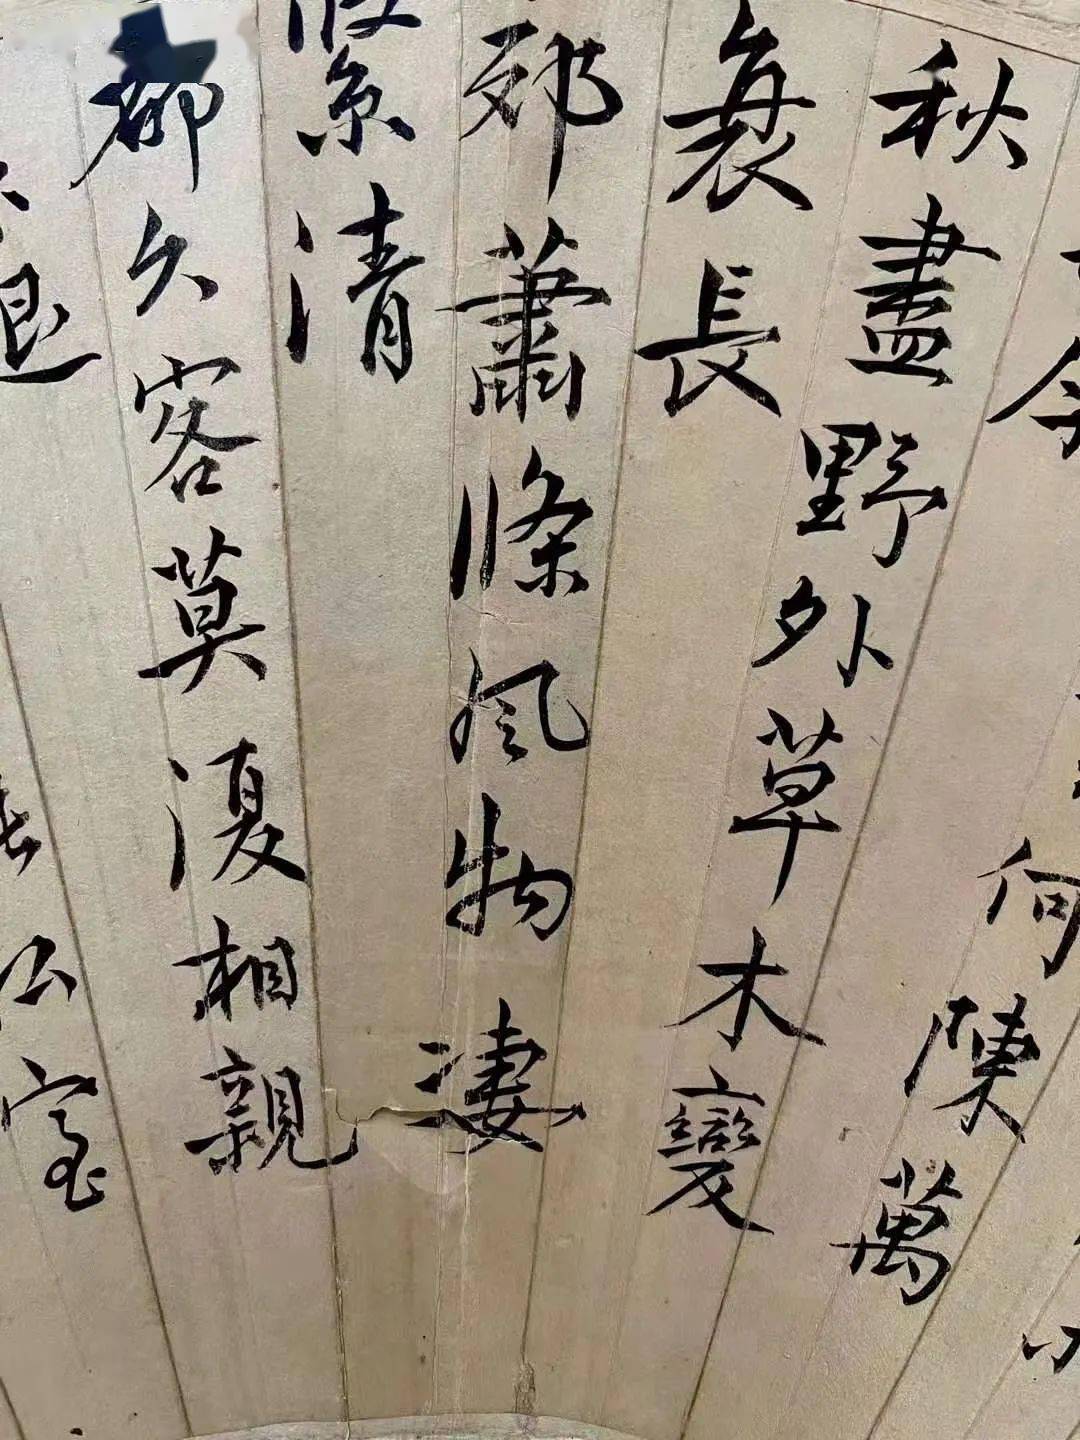 何陳萬
秋盡野外草木變
衰長
郊蕭條風物淒
緊清
都久客莫復相親
退 公室